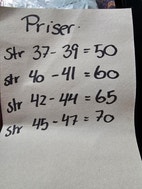 Priser.
Str 37-39=50
Str 40-41=60
Str 42-44=65
Str 45-47=70